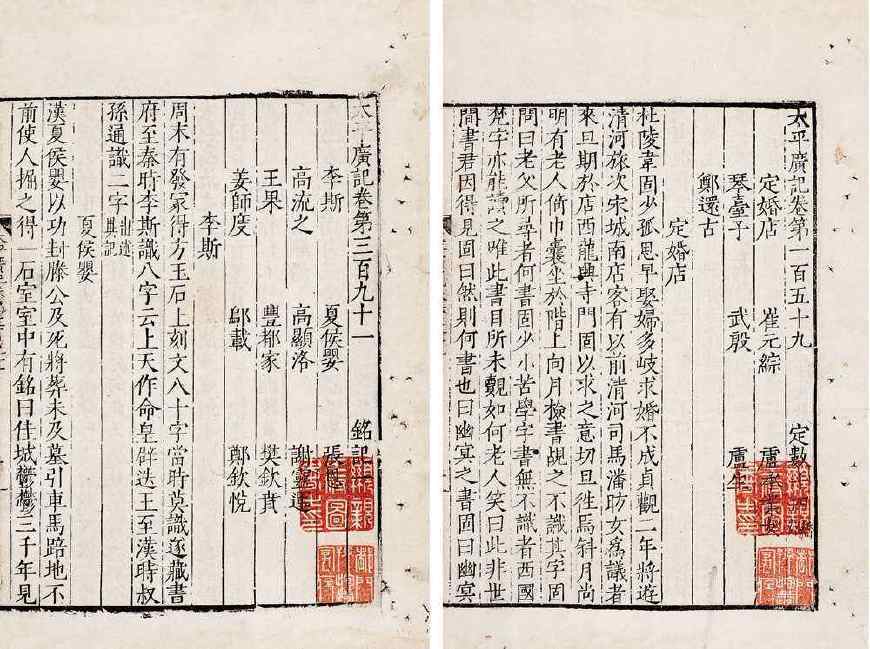 太平廣記卷第一百五十九 定數
定婚店 崔元綜 盧承業女
琴臺子 武殷 盧生
鄭還古
定婚店
杜陵韋固少孤思早娶婦多岐求婚不成貞觀二年將遊
清河旅次宋城南店客有以前清河司馬潘昉女爲議者
來旦期於店西龍興寺門固以求之意切旦往焉斜月尚
明有老人倚巾囊坐於階上向月檢書覘之不識其字固
問曰老父所尋者何書固少小苦學字書無不識者西國
梵字亦能讀之唯此書目所未覿如何老人笑曰此非世
間書君因得見固曰然則何書也曰幽冥之書固曰幽冥
太平廣記卷第三百九十一 銘記一
李斯 夏侯嬰 張恩
高流之 高顯洛 謝靈運
王果 豐都冢 樊欽賁
姜師度 鄔載 鄭欽悅
李斯
周末有發冢得方玉石上刻文八十字當時莫識遂藏書
府至秦時李斯識八字云上天作命皇辟迭王至漢時叔
孫通識二字 出述異記
夏侯嬰
漢夏侯嬰以功封滕公及死將葬未及墓引車馬路地不
前使人掘之得一石室室中有銘曰佳城鬱鬱三千年見